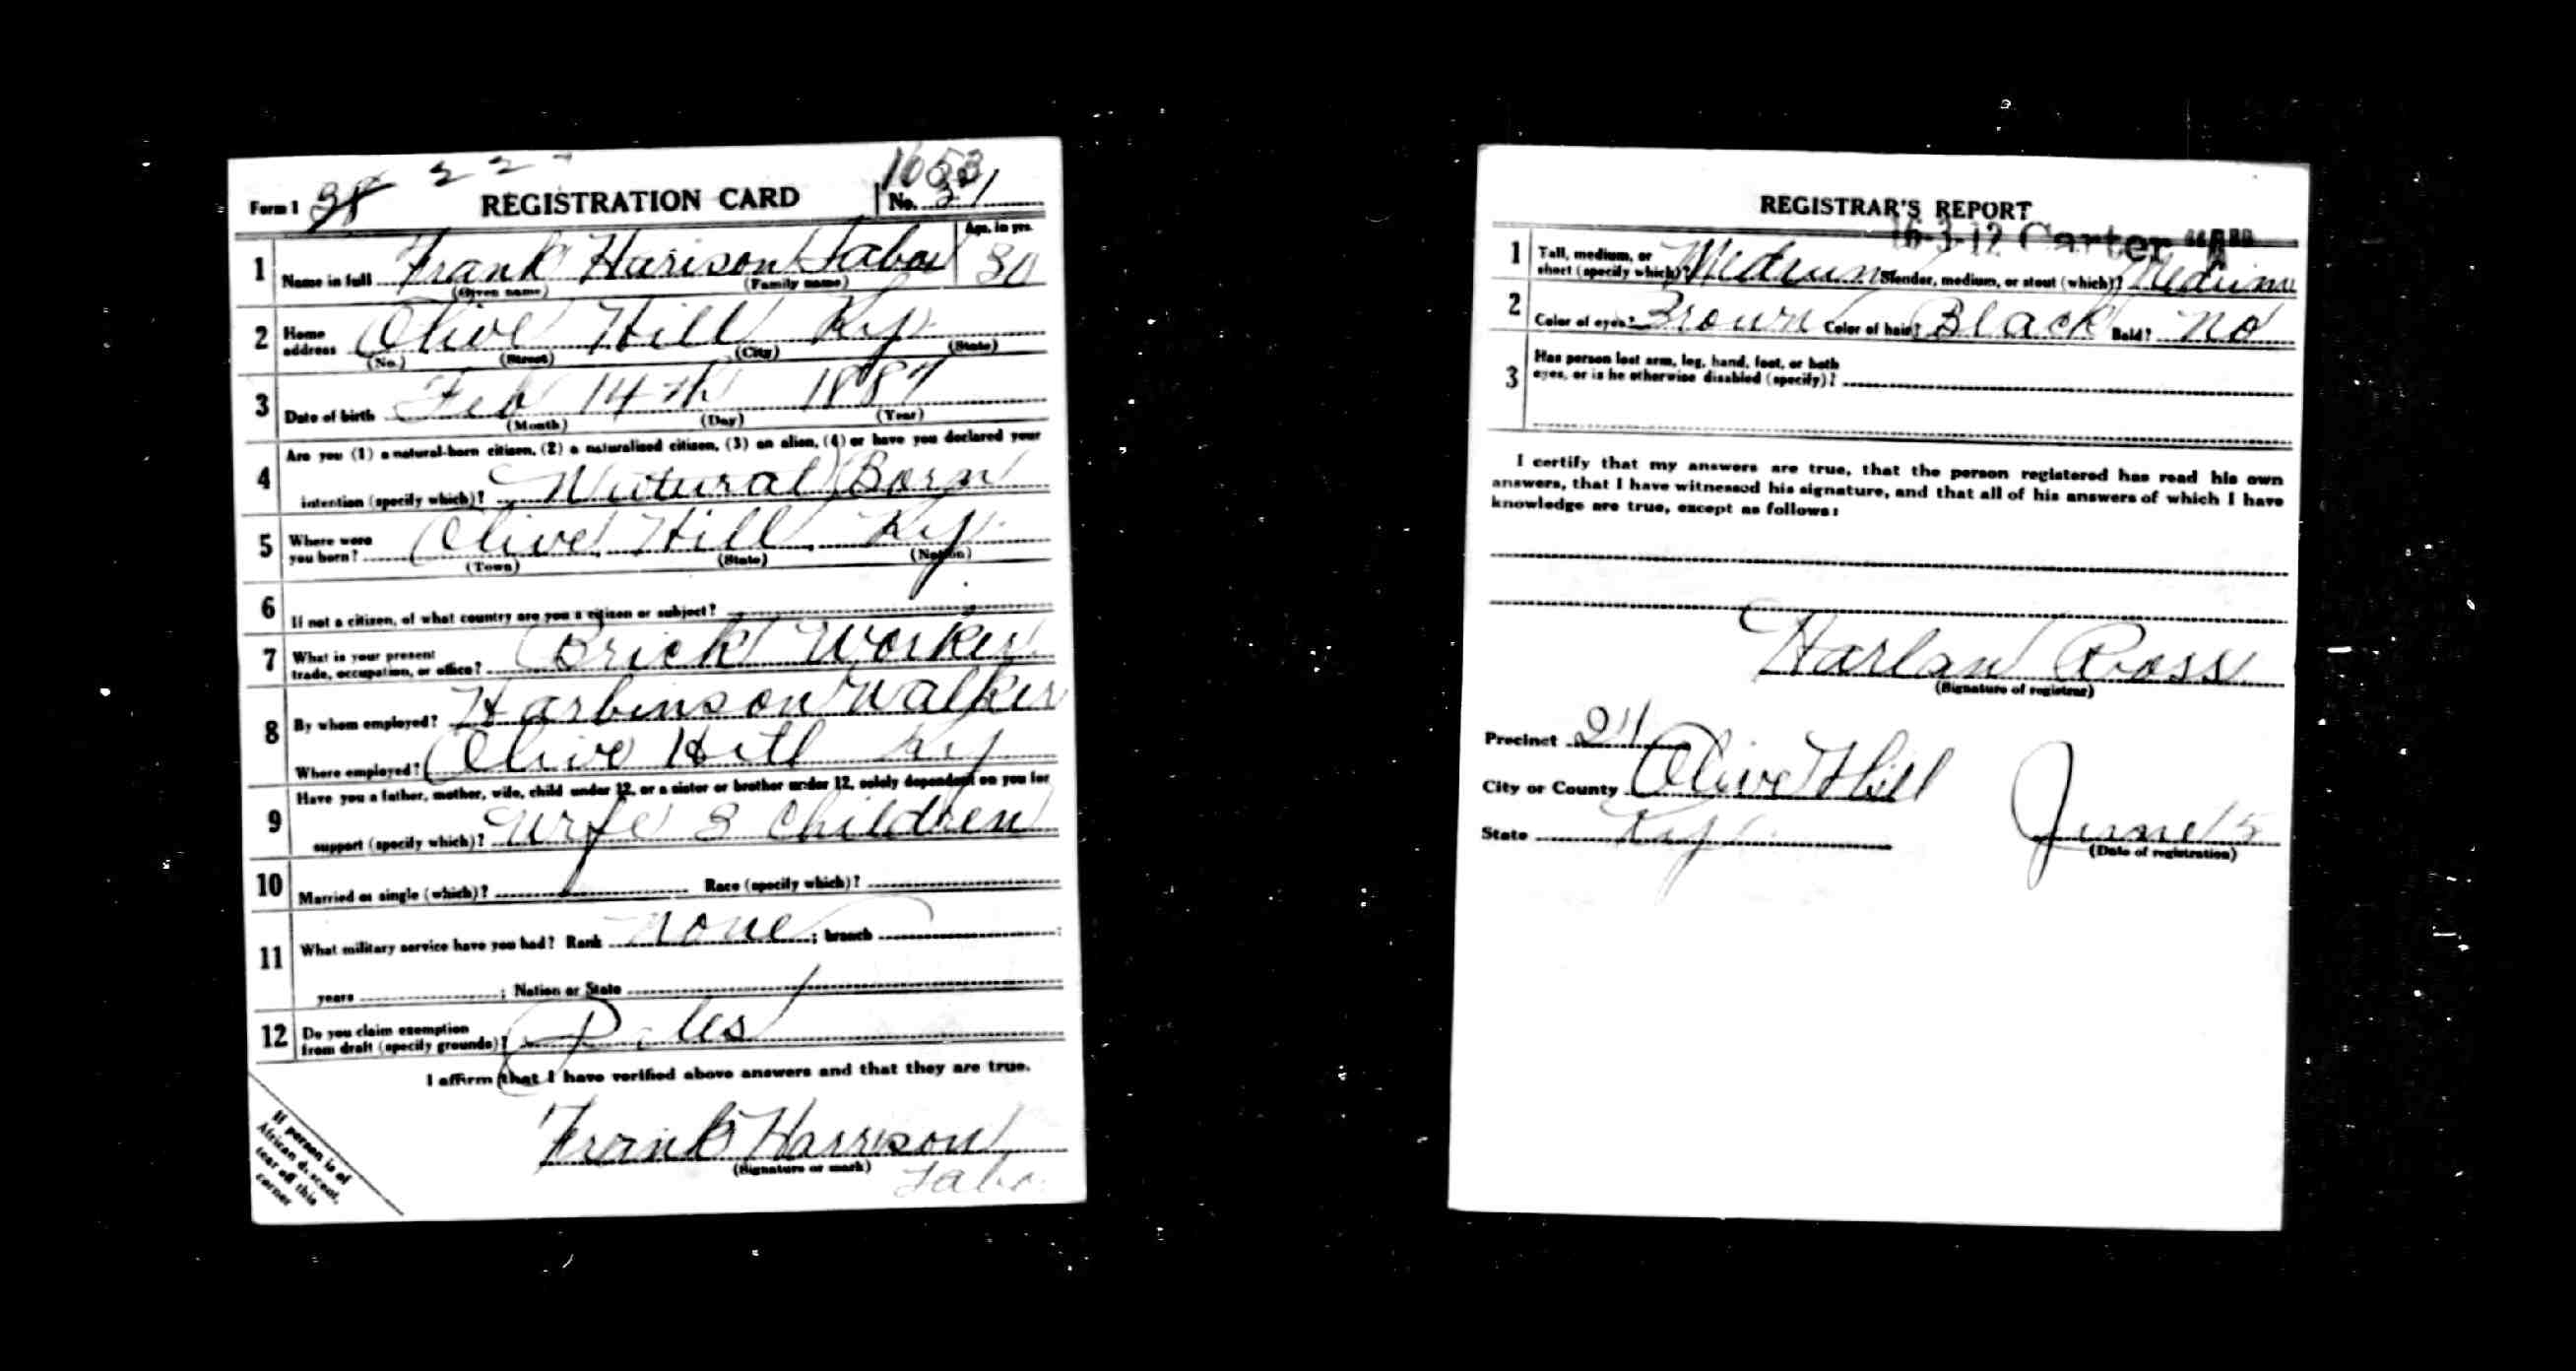 Form 1 38 22 REGISTRATION CARD No. 31
1653
1 Name in full Frank Harison Tabor Age, in yrs. 30
(Given name) (Family name)
2 Home address Olive Hill Ky
(No.) (Street) (City) (State)
3 Date of birth Feb 14th 1887
(Month) (Day) (Year)
4 Are you (1) a natural-born citizen, (2) a naturalized citizen, (3) an alien, (4) or have you declared your
intention (specify which)? Natural Born
5 Where were you born? Olive Hill Ky
(Town) (State) (Nation)
6 If not a citizen, of what country are you a citizen or subject?
7 What is your present trade, occupation, or office? Brick Worker
8 By whom employed? Harbinson Walker
Where employed? Olive Hill Ky
9 Have you a father, mother, wife, child under 12, or a sister or brother under 12, solely dependent on you for
support (specify which)? Wife 3 Children
10 Married or single (which)? Race (specify which)?
11 What military service have you had? Rank None ; branch
years ; Nation or State
12 Do you claim exemption from draft (specify grounds)?
I affirm that I have verified above answers and that they are true.
Frank Harrison
(Signature or mark)
If person is of
African descent,
tear off this
corner
REGISTRAR'S REPORT
16-3-12 Carter
1 Tall, medium, or short (specify which)? Medium Slender, medium, or stout (which)? Medium
2 Color of eyes? Brown Color of hair? Black Bald? No
3 Has person lost arm, leg, hand, foot, or both
eyes, or is he otherwise disabled (specify)?
I certify that my answers are true, that the person registered has read his own
answers, that I have witnessed his signature, and that all of his answers of which I have
knowledge are true, except as follows:
Harlan Ross
(Signature of registrar)
Precinct
City or County Olive Hill
State Ky
June 5
(Date of registration)